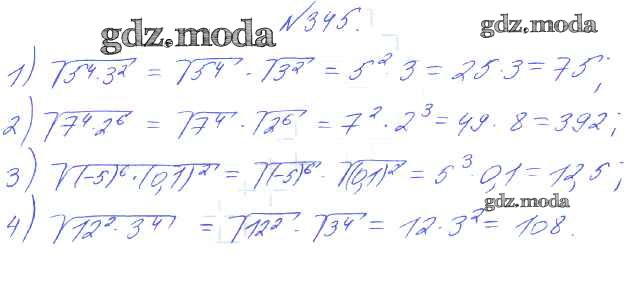 №345.
gdz.moda
gdz.moda
1) √5⁴·3² = √5⁴ · √3² = 5² · 3 = 25·3 = 75;
2) √7⁴·2⁶ = √7⁴ · √2⁶ = 7² · 2³ = 49 · 8 = 392;
3) √(-5)⁶·(0,1)² = √(-5)⁶ · √(0,1)² = 5³ · 0,1 = 12,5;
gdz.moda
4) √12²·3⁴ = √12² · √3⁴ = 12·3² = 108.